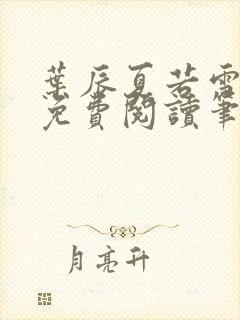 葉辰夏若雪
免費閱讀筆
月亮升